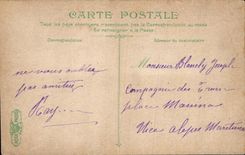 CARTE POSTALE
Tous les pays étrangers n'acceptent pas la Correspondance au recto
(Se renseigner à la Poste)
Correspondance
Adresse du destinataire
ne nous oubliez
pas amitiés
Ray
Monsieur Blanchy Joseph
Compagnie des
place Massena
Nice alpes Maritimes